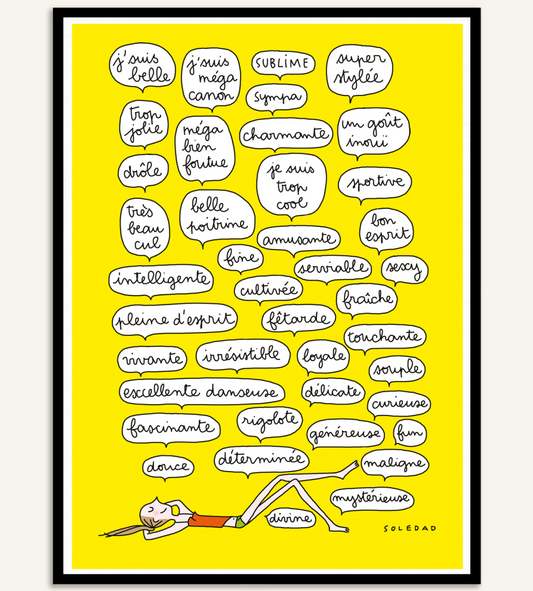 j'suis
belle
j'suis
méga
canon
SUBLIME
super
stylée
sympa
trop
jolie
méga
bien
foutue
charmante
un goût
inouï
drôle
je suis
trop
cool
sportive
très
beau
cul
belle
poitrine
bon
esprit
amusante
fine
serviable
sexy
intelligente
cultivée
fraîche
pleine d'esprit
fêtarde
touchante
vivante
irrésistible
loyale
souple
excellente danseuse
délicate
curieuse
fascinante
rigolote
généreuse
fun
douce
déterminée
maligne
mystérieuse
divine
SOLEDAD